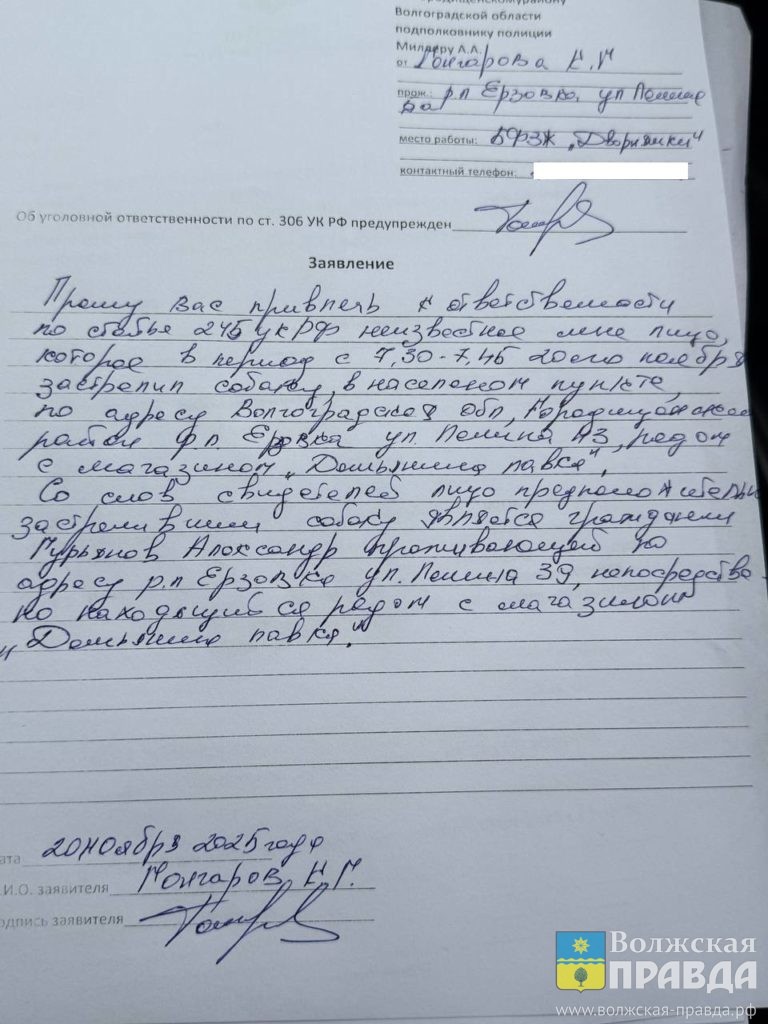 Волгоградской области
подполковнику полиции
Миллеру А.А.
от Гончарова К.Г
прож.: р.п Ерзовка, ул Ленина
место работы: БФЗЖ "Дворняжки"
контактный телефон:
Об уголовной ответственности по ст. 306 УК РФ предупрежден
Заявление
Прошу Вас привлечь к ответственности
по статье 245 УК РФ неизвестное мне лицо,
которое в период с 7,30-7,45 20ого ноября
застрелил собаку, в населеном пункте,
по адресу Волгоградская обл, Городищенский
район р.п Ерзовка ул Ленина 43, рядом
с магазином "Демьянина лавка",
Со слов свидетелей лицо предположительно
застрелившим собаку является гражданин
Александр проживающей по
адресу р.п Ерзовка ул. Ленина 39, непосредстве-
но находящийся рядом с магазином
"Демьянина лавка".
ата 20 ноября 2025 года
.И.О. заявителя Гончаров К.Г.
одпись заявителя
Волжская
ПРАВДА
www.волжская-правда.рф